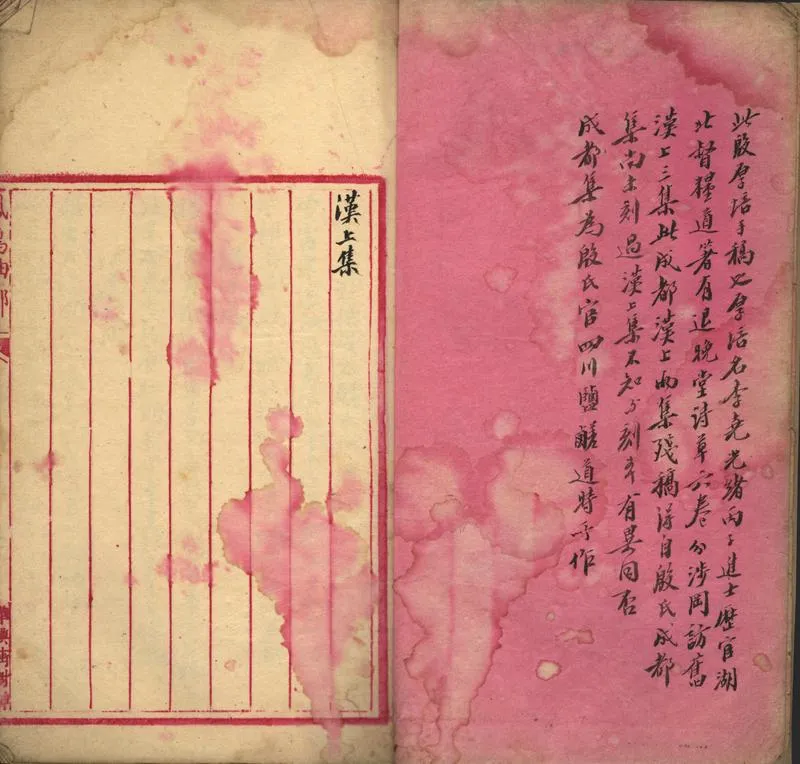 此殷厚培手稿也厚培名李堯光緒丙子進士歷官湖
北督糧道著有退晚堂詩草六卷分涉岡訪舊
漢上三集此成都漢上兩集殘稿得自殷氏成都
集尚未刻過漢上集不知與刻本有異同否
成都集為殷氏官四川鹽茶道時所作
漢上集